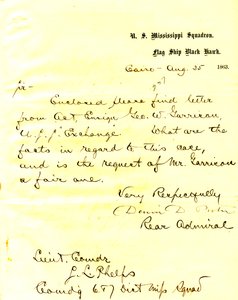 U. S. Mississippi Squadron,
Flag Ship Black Hawk,
Cairo Aug. 25 1863.
Sir
Enclosed please find letter
from Act. Ensign Geo. W. Garrison,
Exchange. What are the
facts in regard to this case,
and is the request of Mr. Garrison
a fair one.
Very Respectfully
David D. Porter
Rear Admiral
Lieut. Comdr
Phelps
Comdg 6 & 7 Dist Miss Squad